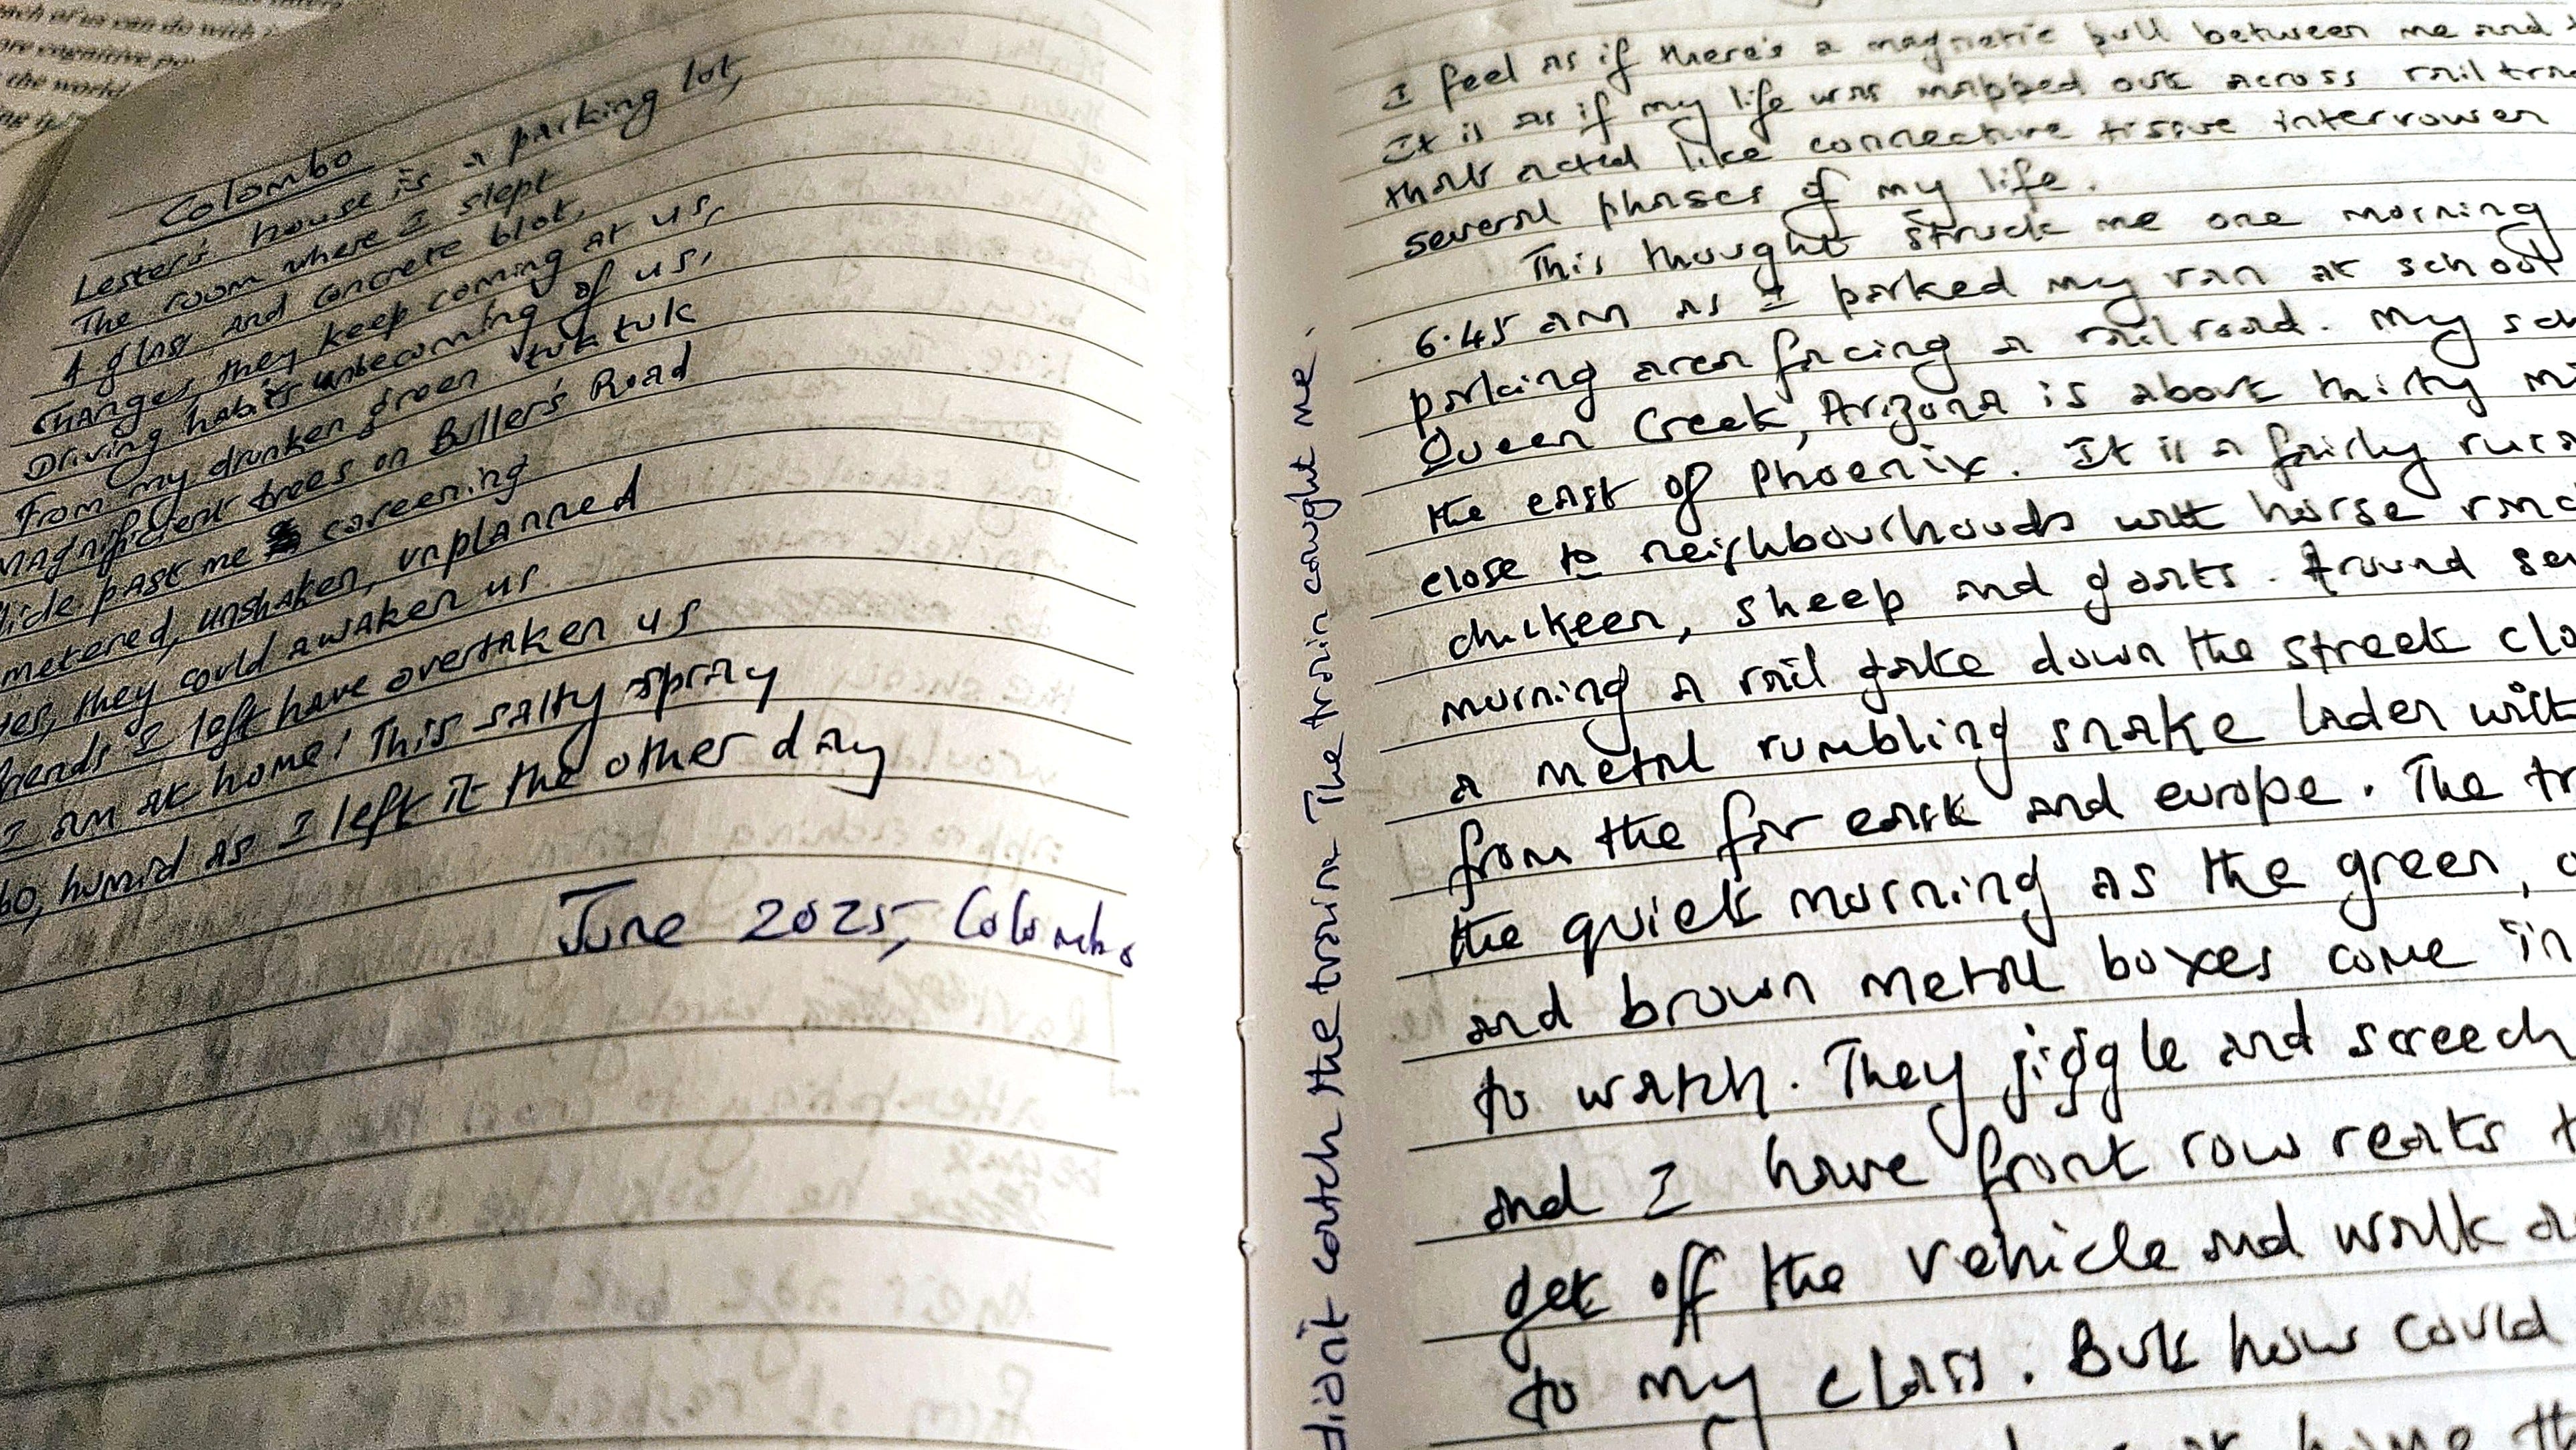 ach of us can do with
are cognitive
the world
Colombo
Lester's house is a parking lot,
The room where I slept
A glass and concrete blot,
Changes, they keep coming at us,
Driving habits unbecoming of us,
From my drunken green tuk tuk
Magnificient trees on Buller's Road
lide past me careening
metered, unshaken, unplanned
yes, they could awaken us
friends I left have overtaken us
I am at home! This salty spray
bo, humid as I left it the other day
June 2025, Colombo
didn't catch the train. The train caught me.
I feel as if there's a magnetic pull between me and
It is as if my life was mapped out across rail tra
that acted like connective tissue interwowen
several phases of my life.
This thought struck me one morning
6.45 am as I parked my van at school
parking area facing a railroad. My sch
Queen Creek, Arizona is about thirty mi
the east of Phoenix. It is a fairly rura
close to neighbourhoods with horse ranc
chickeen, sheep and goats. Around se
morning a rail gate down the street clo
a metal rumbling snake laden with
from the far east and europe. The tr
the quiet morning as the green, o
and brown metal boxes come in
to watch. They jiggle and screech
and I have front row seats t
get off the vehicle and walk a
to my class. But how could